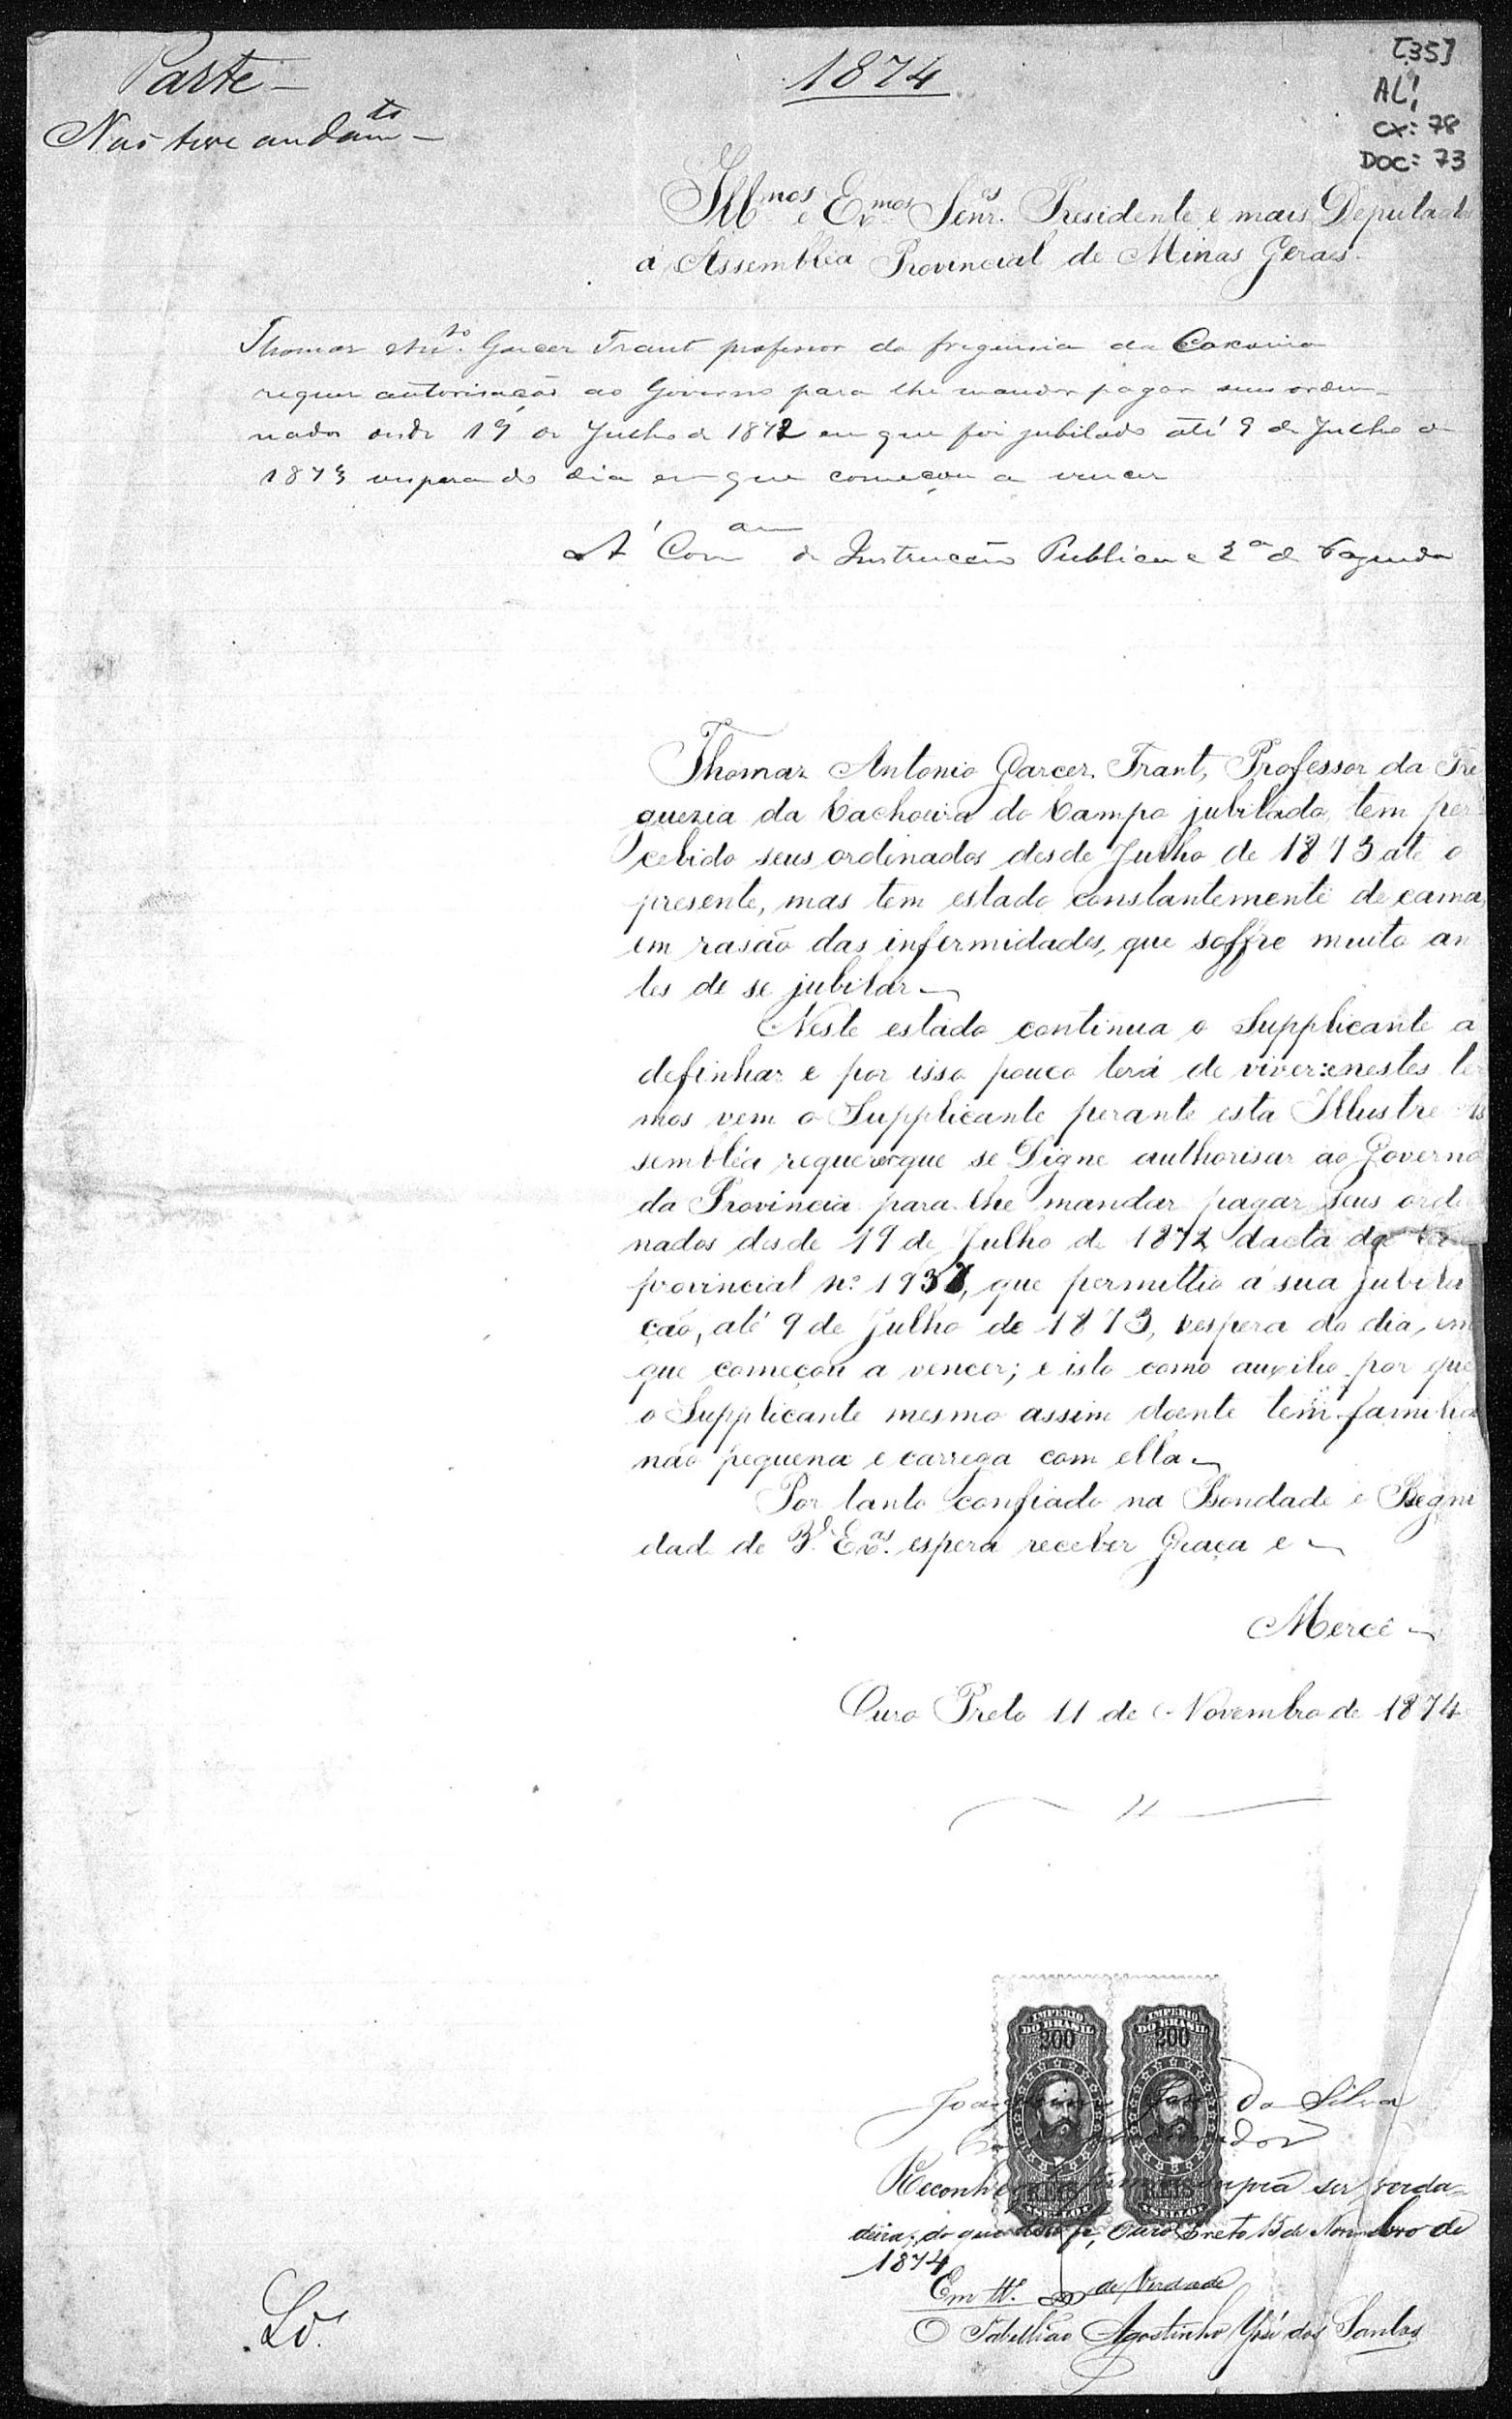 Parte -
Não teve andam.to -
1874
[35]
AL!
CX: 78
DOC: 73
Illmos e Exmos Senr.es Presidente e mais Deputados
á Assembléa Provincial de Minas Geraes.
Thomaz Anto. Garcez Trant professor da freguesia da Caxoeira
requer autorisação ao Governo para lhe mandar pagar seus orde-
nados desde 19 de Julho de 1872 em que foi jubilado até 9 de Julho de
1873 vespera do dia em que começou a vencer
Á Com.am de Instrucção Publica e 2a de Fazenda
Thomaz Antonio Garcez Trant, Professor da Fre
guezia da Cachoeira do Campo jubilado, tem per
cebido seus ordenados desde Julho de 1873 até o
presente, mas tem estado constantemente de cama,
em rasão das infermidades, que soffre muito an
tes de se jubilar -
Neste estado continua o Supplicante a
definhar e por isso pouco terá de viver: e nestes ter
mos vem o Supplicante perante esta Illustre As
sembléa requerer que se Digne authorisar ao Governo
da Provincia para lhe mandar pagar seus orde
nados desde 19 de Julho de 1872 dacta da
provincial nº 1937, que permittio a sua jubila
ção, até 9 de Julho de 1873, vespera do dia, em
que começou a vencer; e isto como auxilio por que
o Supplicante mesmo assim doente tem familia
não pequena e carrega com ella -
Por tanto confiado na Bondade e Begni
dad de V.as Ex.as espera receber Graça e -
Mercê -
Ouro Preto 11 de Novembro de 1874
IMPERIO DO BRASIL
200
REIS
IMPERIO DO BRASIL
200
REIS
Joaquim José da Silva
Reconheço a firma supra ser verda-
deira; do que dou fé, Ouro Preto 15 de Novembro de
1874
Em tto. de Verdade
O Tabellião Agostinho José dos Santos
Lo.